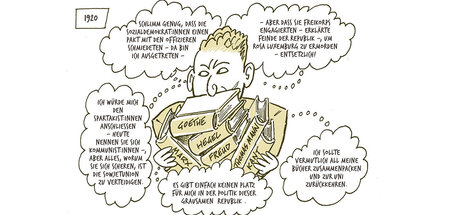 1920
SCHLIMM GENUG, DASS DIE
SOZIALDEMOKRAT:INNEN EINEN
PAKT MIT DEN OFFIZIEREN
SCHMIEDETEN – DA BIN
ICH AUSGETRETEN –
– ABER DASS SIE FREIKORPS
ENGAGIERTEN – ERKLÄRTE
FEINDE DER REPUBLIK –, UM
ROSA LUXEMBURG ZU ERMORDEN
– ENTSETZLICH!
GOETHE
HEGEL
FREUD
THOMAS MANN
MARX
ICH WÜRDE MICH
DEN
SPARTAKIST:INNEN
ANSCHLIESSEN
– HEUTE
NENNEN SIE SICH
KOMMUNIST:INNEN –,
ABER ALLES, WORUM
SIE SICH SCHEREN, IST
DIE SOWJETUNION
ZU VERTEIDIGEN.
ES GIBT EINFACH KEINEN PLATZ
FÜR MICH IN DER POLITIK DIESER
GRAUSAMEN REPUBLIK.
ICH SOLLTE
VERMUTLICH ALL MEINE
BÜCHER ZUSAMMENPACKEN
UND ZUR UNI
ZURÜCKKEHREN.